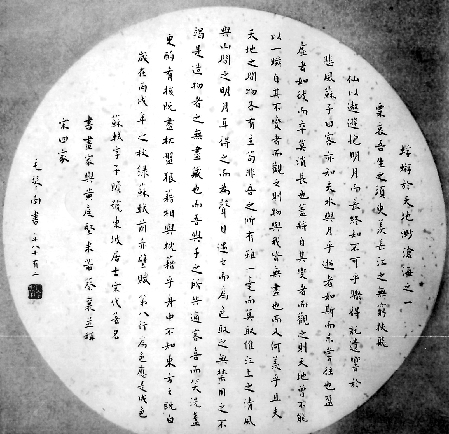 蜉蝣於天地渺滄海之一
粟哀吾生之須臾羨長江之無窮挾飛
仙以遨遊抱明月而長終知不可乎驟得託遺響於
悲風蘇子曰客亦知夫水與月乎逝者如斯而未嘗往也盈
虛者如彼而卒莫消長也蓋將自其變者而觀之則天地曾不能
以一瞬自其不變者而觀之則物與我皆無盡也而又何羨乎且夫
天地之間物各有主苟非吾之所有雖一毫而莫取惟江上之清風
與山間之明月耳得之而為聲目遇之而為色取之無禁用之不
竭是造物者之無盡藏也而吾與子之所共適客喜而笑洗盞
更酌肴核既盡杯盤狼藉相與枕藉乎舟中不知東方之既白
歲在丙戌年之秋錄蘇軾前赤壁賦第八行為色應是成色
蘇軾字子瞻號東坡居士宋代著名
書畫家與黃庭堅米芾蔡襄並稱
宋四家
尚書